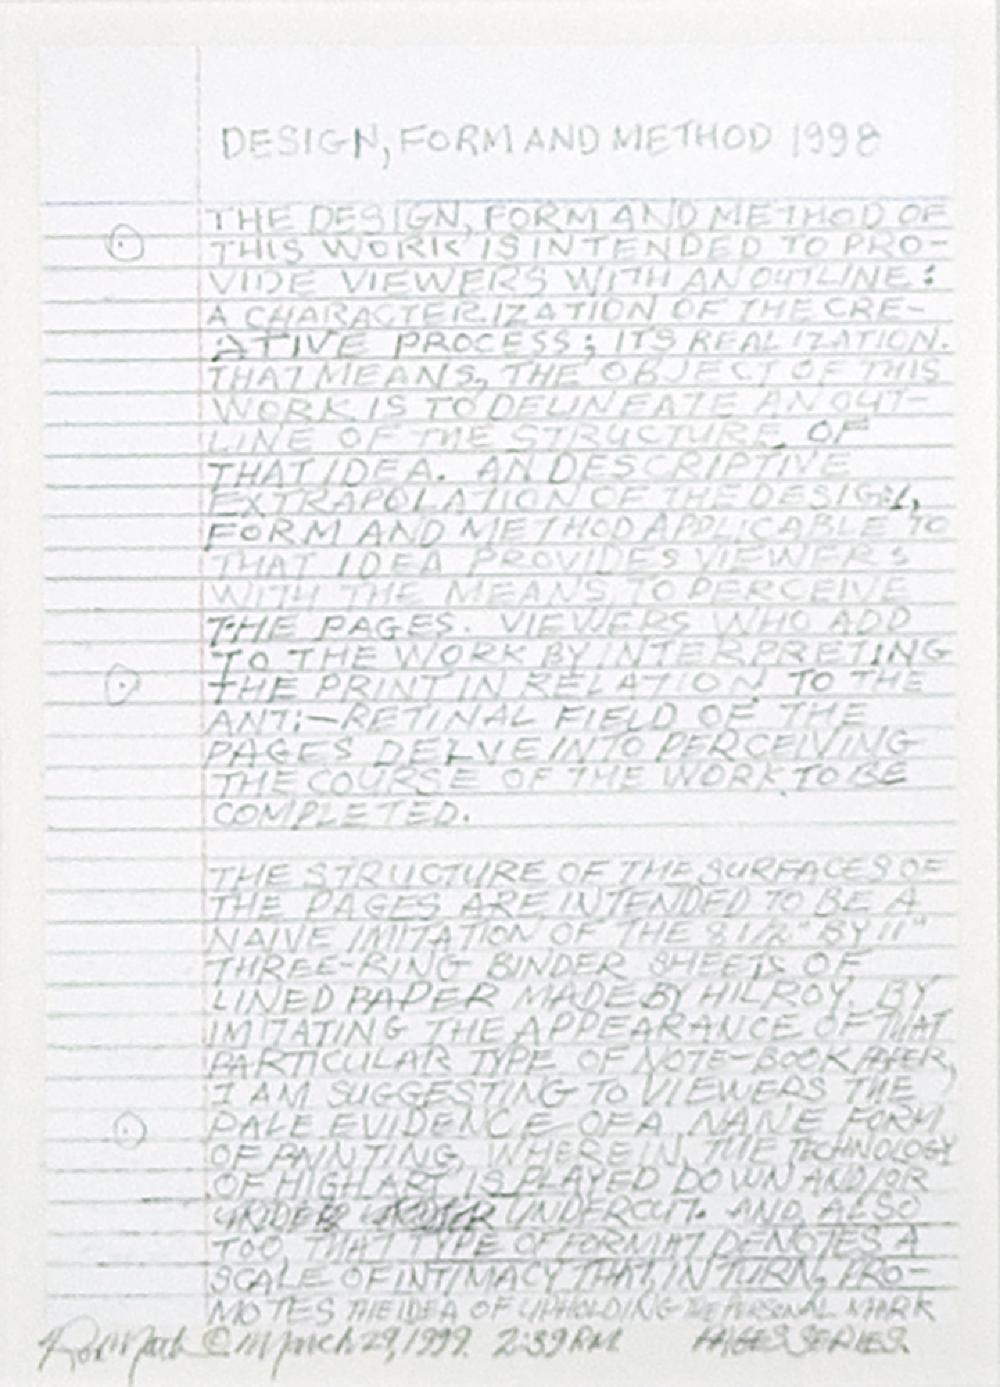 DESIGN, FORM AND METHOD 1998
THE DESIGN, FORM AND METHOD OF
THIS WORK IS INTENDED TO PRO-
VIDE VIEWERS WITH AN OUTLINE:
A CHARACTERIZATION OF THE CRE-
ATIVE PROCESS; ITS REALIZATION.
THAT MEANS, THE OBJECT OF THIS
WORK IS TO DELINEATE AN OUT-
LINE OF THE STRUCTURE OF
THAT IDEA. AN DESCRIPTIVE
EXTRAPOLATION OF THE DESIGN,
FORM AND METHOD APPLICABLE TO
THAT IDEA PROVIDES VIEWERS
WITH THE MEANS TO PERCEIVE
THE PAGES. VIEWERS WHO ADD
TO THE WORK BY INTERPRETING
THE PRINT IN RELATION TO THE
ANTI-RETINAL FIELD OF THE
PAGES DELVE INTO PERCEIVING
THE COURSE OF THE WORK TO BE
COMPLETED.
THE STRUCTURE OF THE SURFACES OF
THE PAGES ARE INTENDED TO BE A
NAIVE IMITATION OF THE 8 1/2" BY 11"
THREE-RING BINDER SHEETS OF
LINED PAPER MADE BY HILROY. BY
IMITATING THE APPEARANCE OF THAT
PARTICULAR TYPE OF NOTE-BOOK PAPER,
I AM SUGGESTING TO VIEWERS THE
PALE EVIDENCE OF A NAIVE FORM
OF PAINTING, WHEREIN, THE TECHNOLOGY
OF HIGH ART IS PLAYED DOWN AND/OR
UNDERCUT. AND ALSO
TOO, THAT TYPE OF FORMAT DENOTES A
SCALE OF INTIMACY THAT, IN TURN, PRO-
MOTES THE IDEA OF UPHOLDING THE PERSONAL MARK
© March 29, 1999. 2:39 PM. PAGES SERIES.